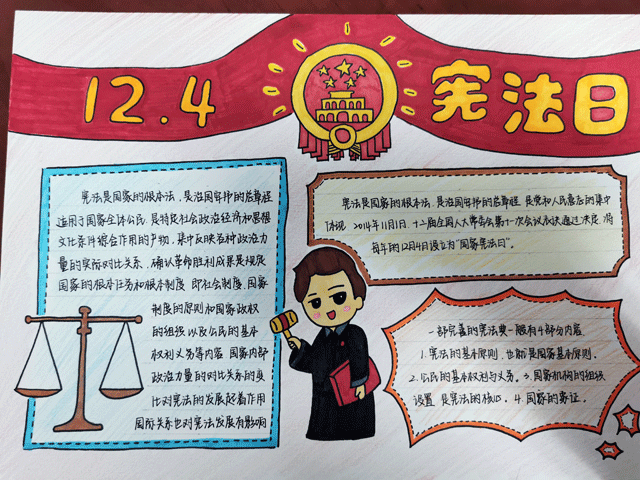 12.4
宪法日
宪法是国家的根本法,是治国安邦的总章程
适用于国家全体公民,是特定社会政治经济和思想
文化条件综合作用的产物,集中反映各种政治力
量的实际对比关系,确认革命胜利成果是现实
国家的根本任务和根本制度 即社会制度、国家
制度的原则和国家政权
的组织以及公民的基本
权利义务等内容 国家内部
政治力量的对比关系的变
化对宪法的发展起着作用
国际关系也对宪法发展有影响
宪法是国家的根本法,是治国安邦的总章程 是党和人民意志的集中
体现 2014年11月1日,十二届全国人大常委会第十一次会议表决通过决定,将
每年的12月4日设立为“国家宪法日”.
一部完善的宪法典一般有4部分内容
1.宪法的基本原则,也即是国家基本原则.
2.公民的基本权利与义务。3.国家机构的组织
设置 是宪法的核心. 4.国家的象征.